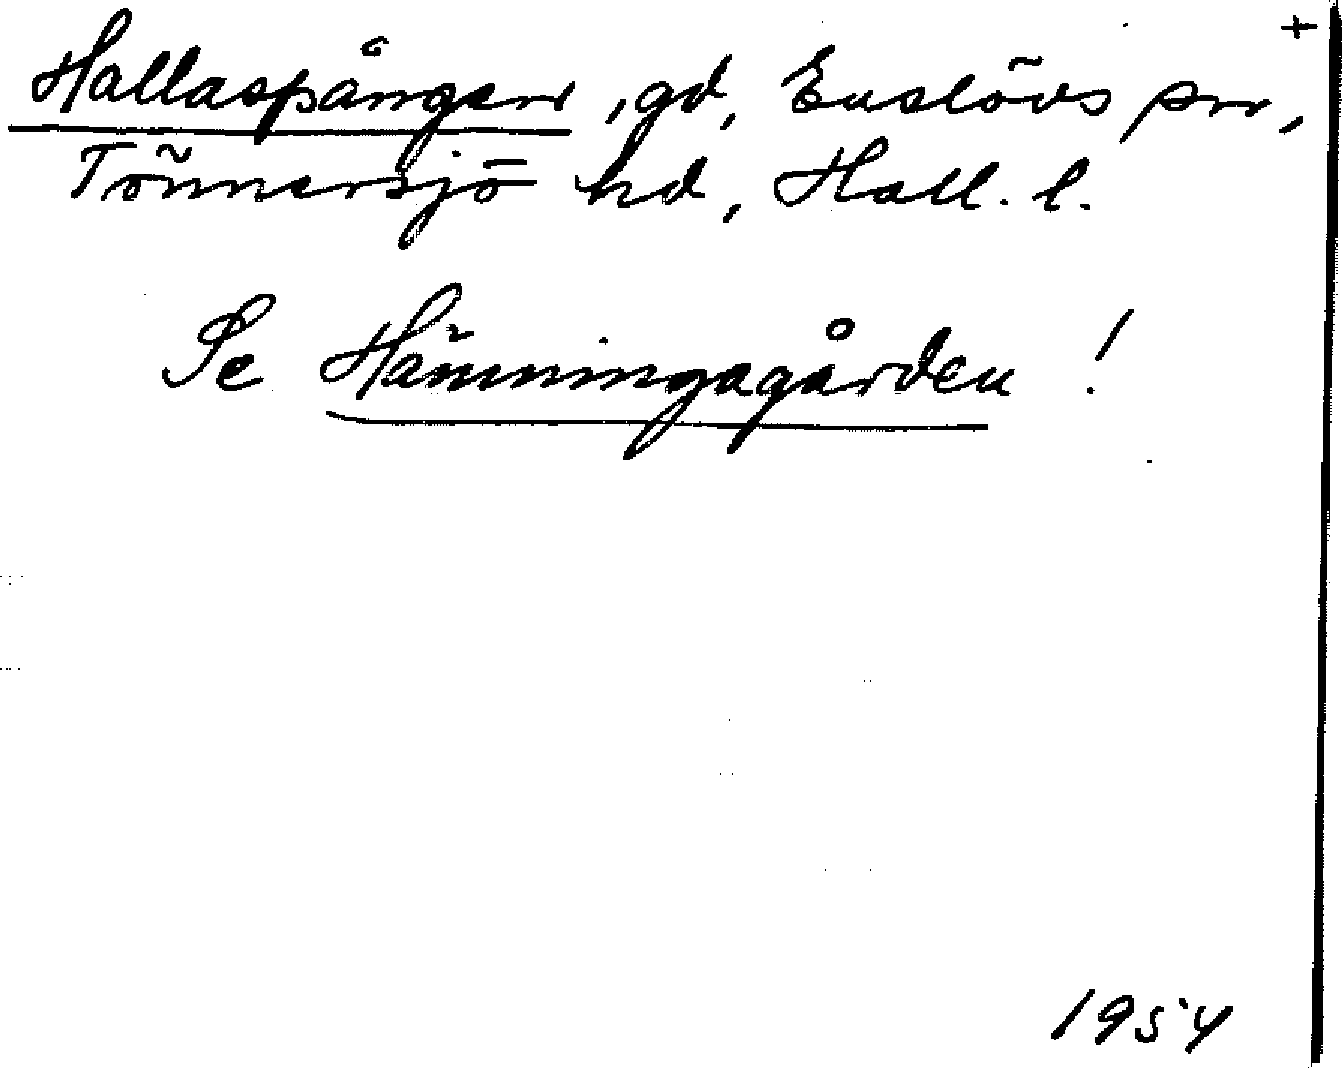 +
Hallaspången, gd, Enslövs sn,
Tönnersjö hd, Hall. l.
Se Hämningagården !
1954